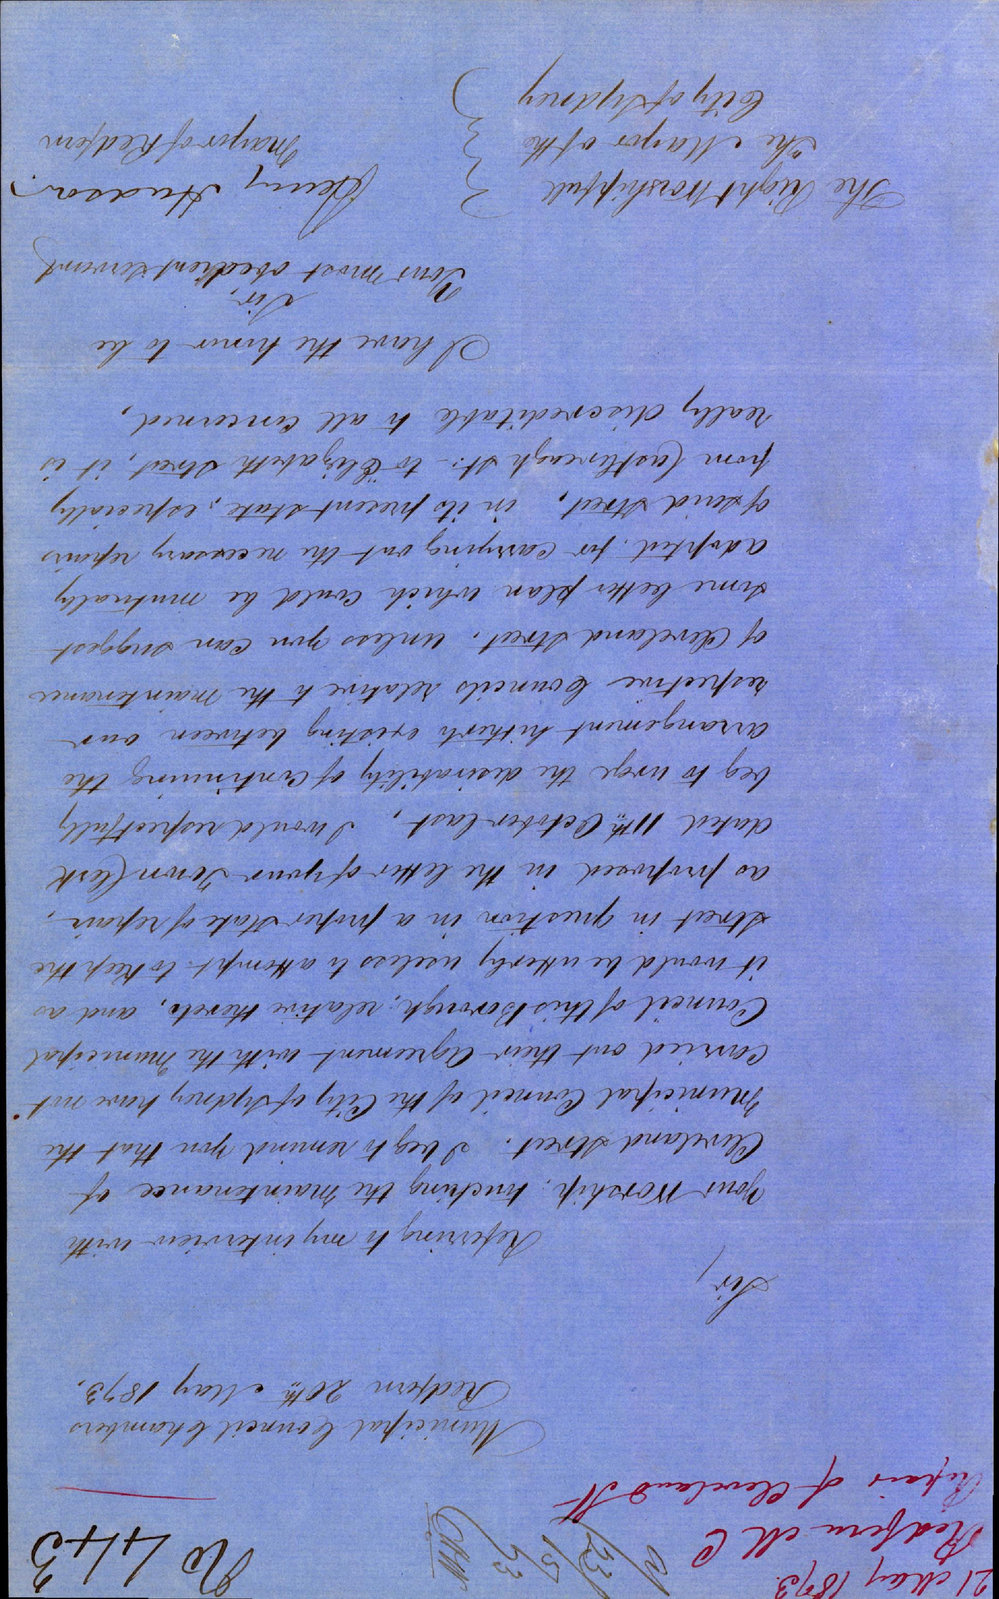 21 May 1873.
Redfern M C
Repair of Cleveland St
No 443
Municipal Council Chambers
Redfern 20th May 1873.
Sir,
Referring to my interview with
Your Worship, touching the maintenance of
Cleveland Street. I beg to remind you that the
Municipal Council of the City of Sydney have not
carried out their Agreement with the Municipal
Council of this Borough, relative thereto, and as
it would be utterly useless to attempt to keep the
Street in question in a proper state of repair,
as proposed in the letter of your Town Clerk
dated 11th October last, I would respectfully
beg to urge the desirability of continuing the
arrangement hitherto existing between our
respective Councils relative to the maintenance
of Cleveland Street. Unless you can suggest
some better plan which could be mutually
adopted for carrying out the necessary repairs
of said Street, in its present state, especially
from Castlereagh St. to Elizabeth Street, it is
really discreditable to all concerned,
I have the honor to be
Sir,
Your most obedient servant,
Henry Hudson.
Mayor of Redfern
The Right Worshipfull
The Mayor of the
City of Sydney